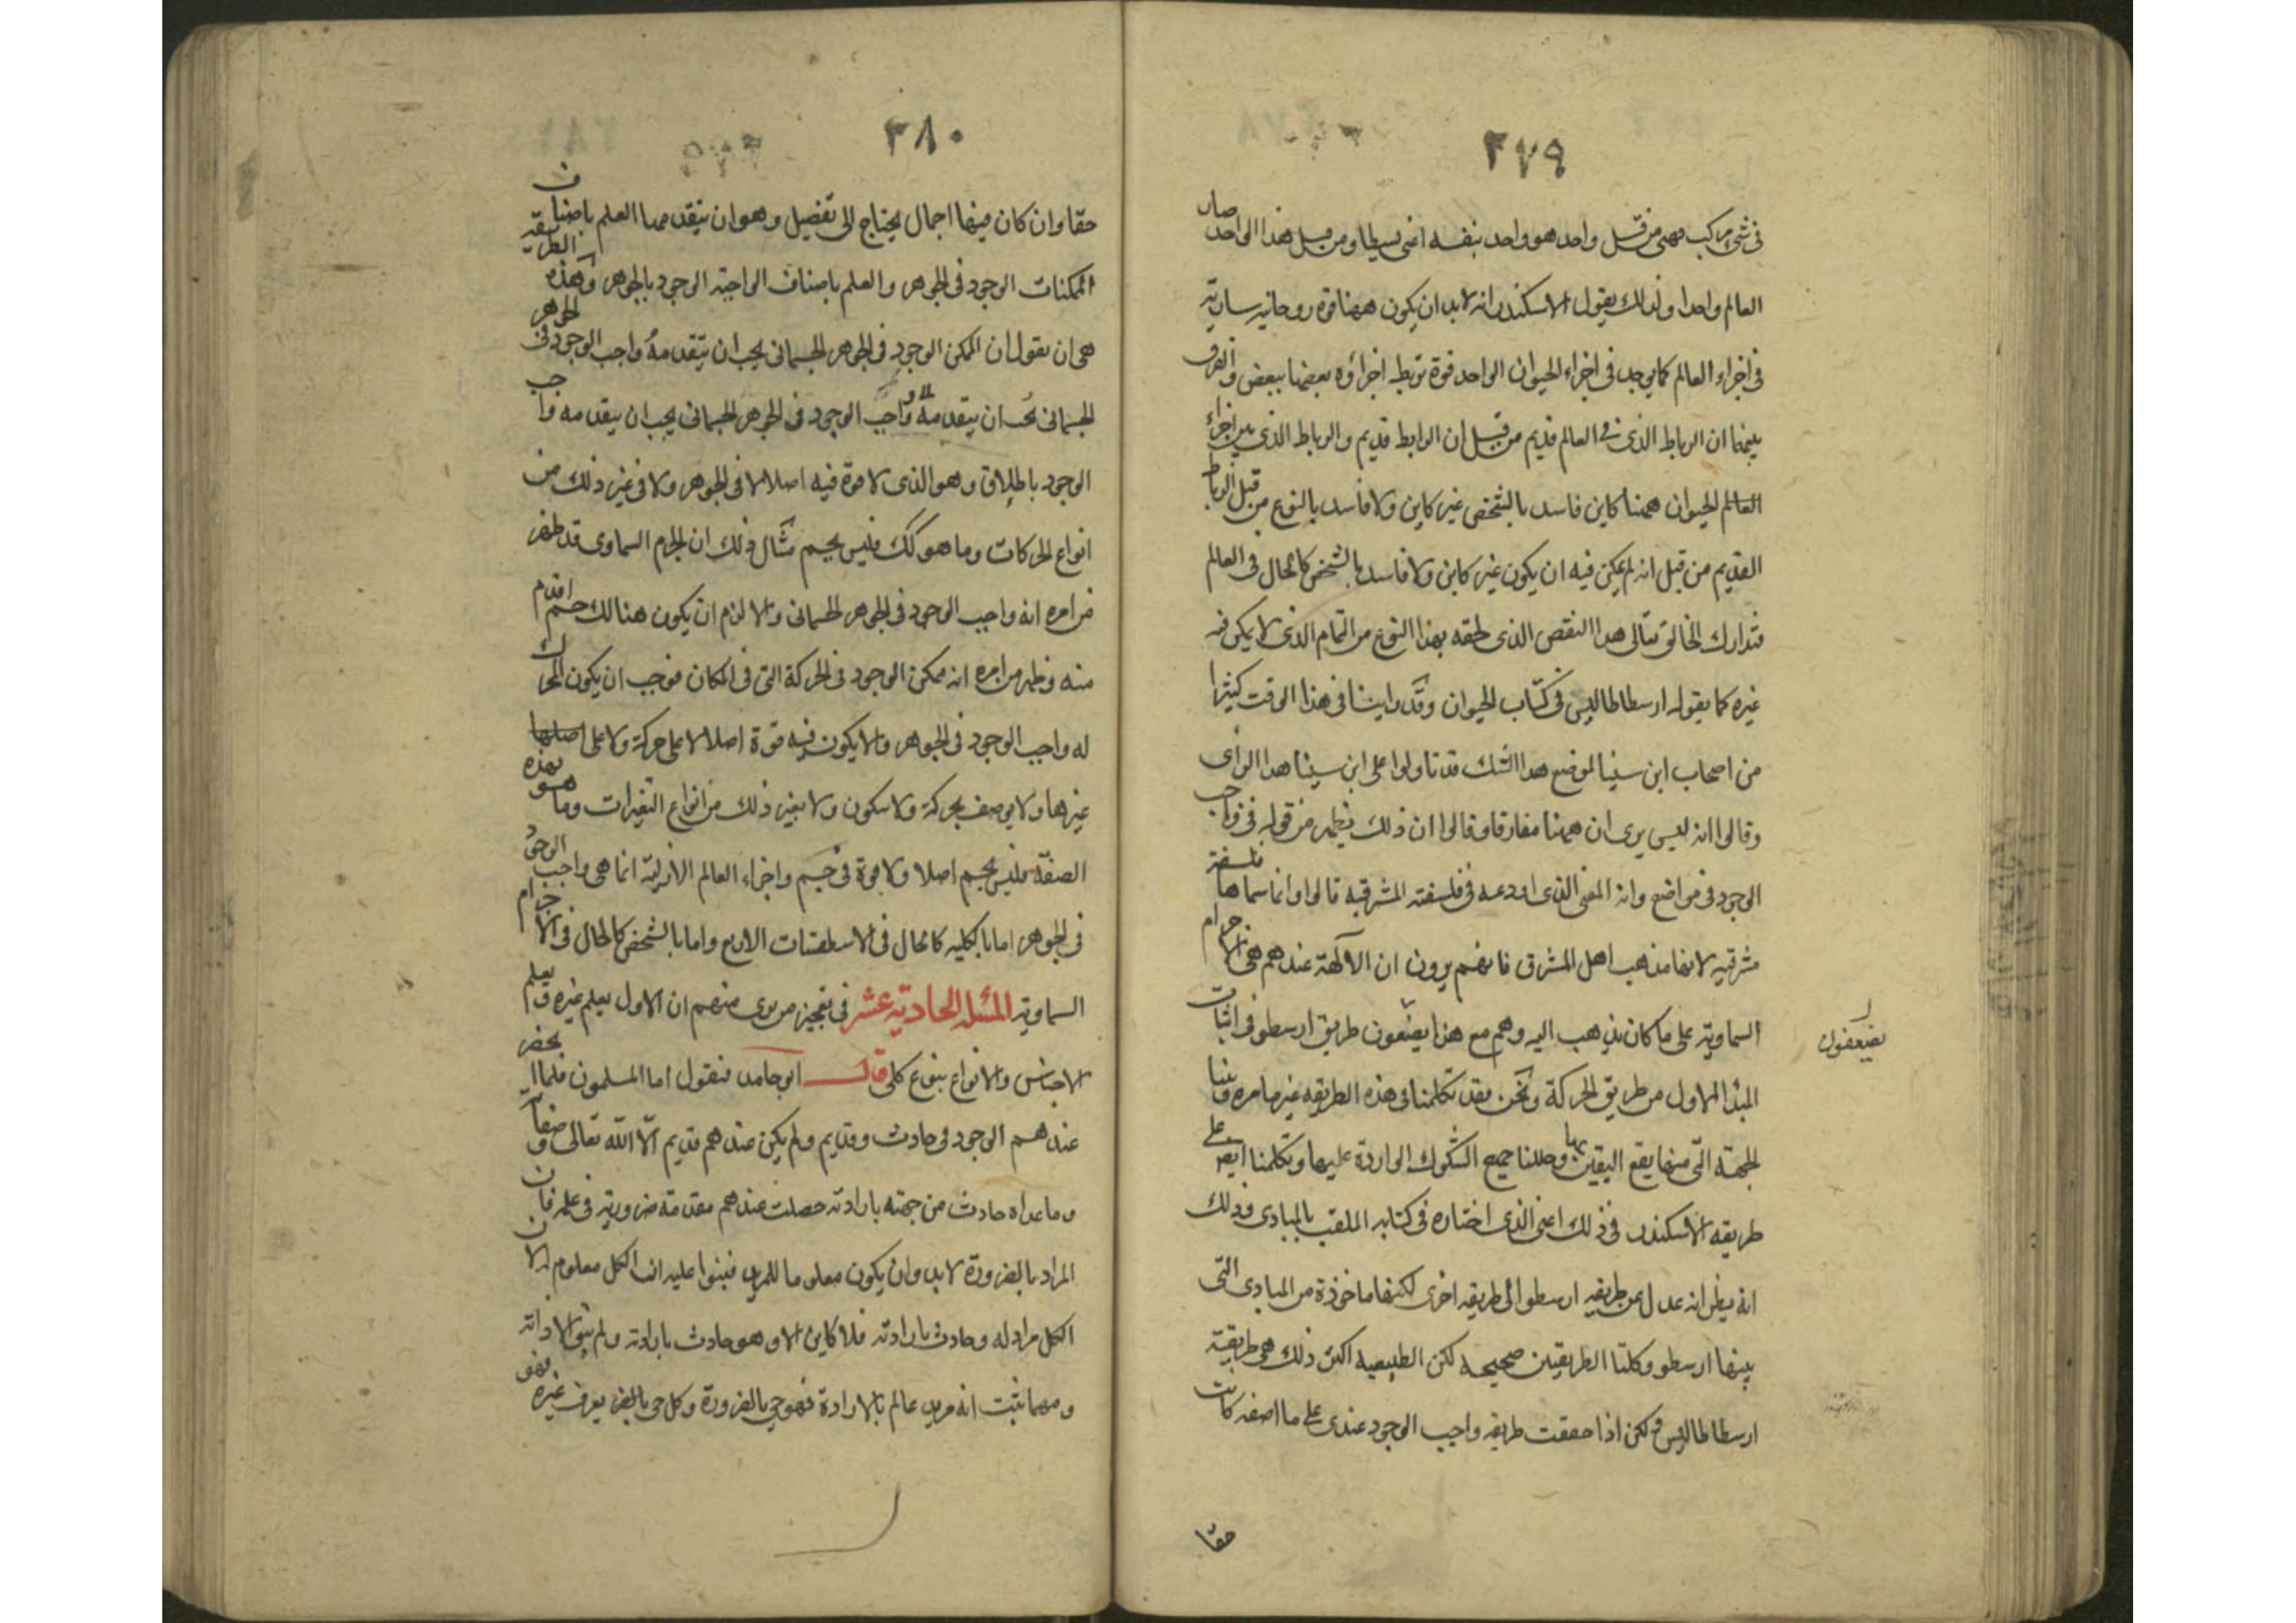 ٢٧٩
فى شئ مركب فهى من قبل واحد هو واحد بنفسه اعنى بسيطا ومن قبل هذا الواحد صار
العالم واحدا ولذلك يقول الاسكندر انه لا بد ان يكون ههنا قوة روحانيه سارية
فى اجزاء العالم كما يوجد فى اجزاء الحيوان الواحد قوة تربط اجزاؤه بعضها ببعض والفرق
بينهما ان الرباط الذى فى العالم قديم من قبل ان الرابط قديم والرباط الذى بين اجزاء
العالم الحيوان ههنا كاين فاسد بالشخص غير كاين ولا فاسد بالنوع من قبل الرباط
القديم من قبل انه لم يمكن فيه ان يكون غير كاين ولا فاسد بالشخص كالحال فى العالم
فتدارك الخالق تعالى هذا النقص الذى لحقه بهذا النوع من التمام الذى لا يمكن فيه
غيره كما يقوله ارسطاطاليس فى كتاب الحيوان وقد راينا فى هذا الوقت كثيرا
من اصحاب ابن سينا لموضع هذا الشك قد تاولوا على ابن سينا هذا الراى
وقالوا انه ليس يرى ان ههنا مفارقا وقالوا ان ذلك يظهر من قوله فى واجب
الوجود فى مواضع وانه المعنى الذى اودعه فى فلسفته المشرقيه قالوا وانما سماها فلسفة
مشرقيه لانها مذهب اهل المشرق فانهم يرون ان الآلهة عندهم هى الاجرام
السماوية على ما كان يذهب اليه وهم مع هذا يضعون طريق ارسطو فى اثبات
يضعفون
المبدا الاول من طريق الحركة ونحن فقد تكلمنا فى هذه الطريقه غير ما مره وبينا
الجهة التى منها يقع اليقين بها وحللنا جميع الشكوك الواردة عليها وتكلمنا ايضا على
طريقه الاسكندر فى ذلك اعنى الذى اختاره فى كتابه الملقب بالمبادى وذلك
انه يظن انه عدل عن طريقه ارسطو الى طريقه اخرى لكنها ماخوذة من المبادى التى
بينها ارسطو وكلتا الطريقين صحيحه لكن الطبيعيه اكثر ذلك هى طريقة
ارسطاطاليس ولكن اذا حققت طريقه واجب الوجود عندى على ما اصفه كانت
حقا
٢٨٠
حقا وان كان فيها اجمال يحتاج الى تفصيل وهو ان يتقدمها العلم باصناف
الممكنات الوجود فى الجوهر والعلم باصناف الواجبة الوجود بالجوهر وهذه الطريقه
هى ان نقول ان الممكن الوجود فى الجوهر الجسمانى يجب ان يتقدمه واجب الوجود فى الجوهر
الجسمانى يجب ان يتقدمه واجب الوجود فى الجوهر الجسمانى يجب ان يتقدمه واجب
الوجود باطلاق وهو الذى لا قوة فيه اصلا لا فى الجوهر ولا فى غير ذلك من
انواع الحركات وما هو كك فليس بجسم مثال ذلك ان الجرم السماوى قد ظهر
من امره انه واجب الوجود فى الجوهر الجسمانى والا لزم ان يكون هنالك جسم اقدم
منه وظهر من امره انه ممكن الوجود فى الحركة التى فى المكان فوجب ان يكون المحرك
له واجب الوجود فى الجوهر والا يكون فيه قوة اصلا لا على حركة ولا على اصلها
غيرها ولا يوصف بحركة ولا سكون ولا بغير ذلك من انواع التغيرات وما هو بهذه
الصفة فليس بجسم اصلا ولا قوة فى جسم واجزاء العالم الازلية انما هى واجب الوجود
فى الجوهر اما بالكليه كالحال فى الاسطقسات الاربع واما بالشخص كالحال فى الاجرام
السماوية المسئلة الحادية عشر فى تعجيز من يرى منهم ان الاول يعلم غيره ويعلم
الاجناس والانواع بنوع كلى قال ابو حامد فنقول اما المسلمون فلما انحصر
عندهم الوجود فى حادث وقديم ولم يكن عندهم قديم الا الله تعالى وصفاته
وما عداه حادث من جهته بارادته حصلت عندهم مقدمة ضرورية فى علمه فان
المراد بالضرورة لا بد وان يكون معلوما للمريد فبنوا عليه ان الكل معلوم له لان
الكل مراد له وحادث بارادته فلا كاين الا وهو حادث بارادته ولم يبق الا ذاته
ومهما ثبت انه مريد عالم بالارادة فهو حى بالضرورة وكل حى بالضر يعرف غيره فهو